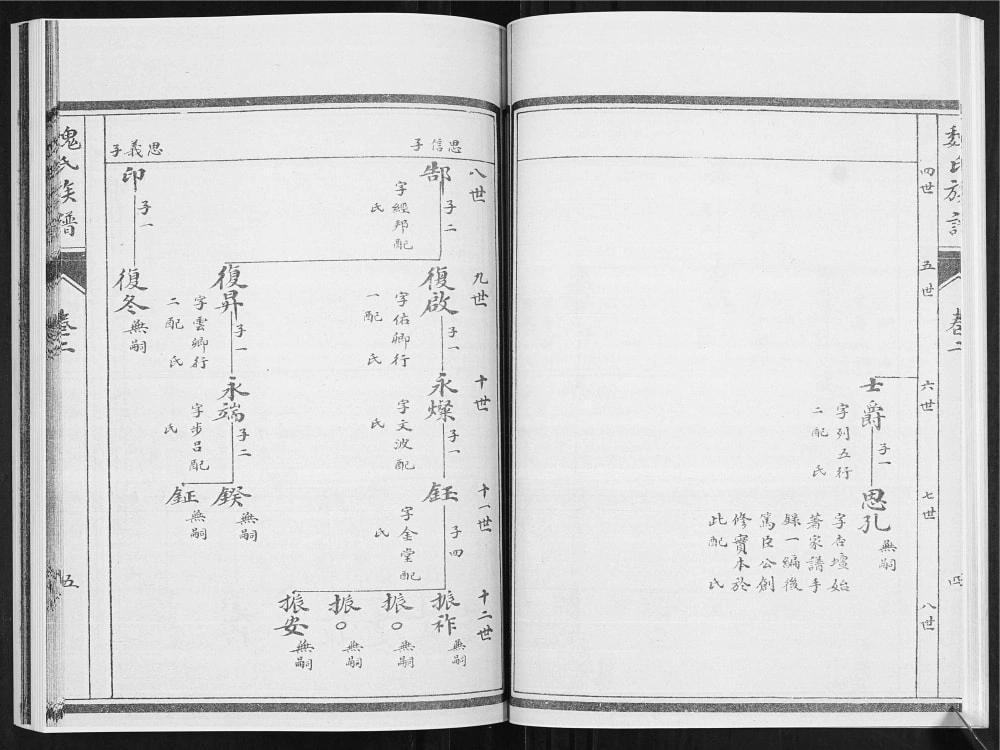 魏氏族譜
卷二
四
四世
五世
六世
七世
八世
士爵
子一
字列五行
二配 氏
思孔
無嗣
字杏壇始
著家譜手
錄一編後
篤臣公創
修實本於
此配 氏
八世
九世
十世
十一世
十二世
思信子
郜
子二
字經邦配
氏
復啟
子一
字佑卿行
一配 氏
永燦
子一
字文波配
氏
鈺
子四
字金堂配
氏
振祚
無嗣
振○
無嗣
振○
無嗣
振安
無嗣
復昇
子一
字雲卿行
二配 氏
永端
子二
字步呂配
氏
鍨
無嗣
鉦
無嗣
思義子
印
子一
復冬
無嗣
魏氏族譜
卷二
五